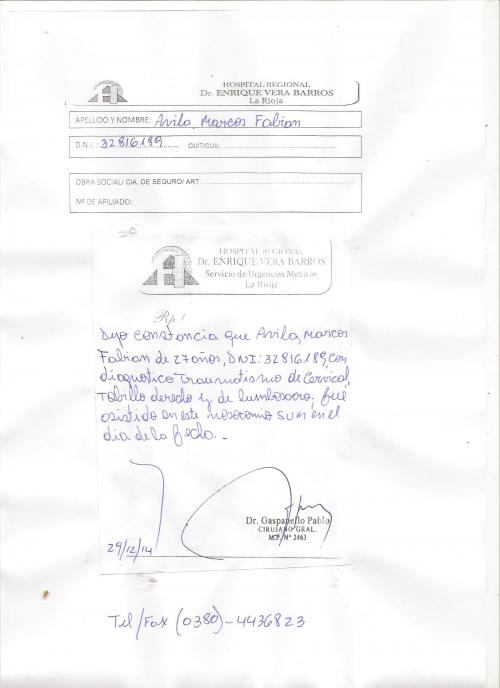 HOSPITAL REGIONAL
Dr. ENRIQUE VERA BARROS
La Rioja
APELLIDO Y NOMBRE: Avila, Marcos Fabian
D.N.I.: 32816189 CUIT/CUIL:
OBRA SOCIAL/ CIA. DE SEGURO/ ART:
Nº DE AFILIADO:
HOSPITAL REGIONAL
Dr. ENRIQUE VERA BARROS
Servicio de Urgencias Medicas
La Rioja
Rp./
Dejo constancia que Avila, Marcos
Fabian de 27 años, DNI: 32816189, con
diagnostico Traumatismo de Cervical,
Tobillo derecho y de lumbosacro, fué
asistido en este nosocomio SUM en el
dia de la fecha.-
29/12/14
Dr. Gaspanello Pablo
CIRUJANO GRAL.
M.P. Nº 2463
Tel/Fax (0380)-4436823